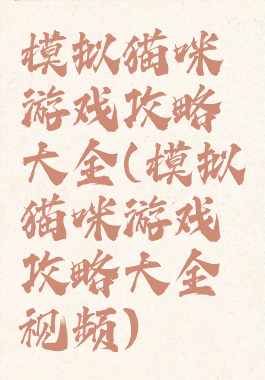 模拟猫咪
游戏攻略
大全(模拟
猫咪游戏
攻略大全
视频)